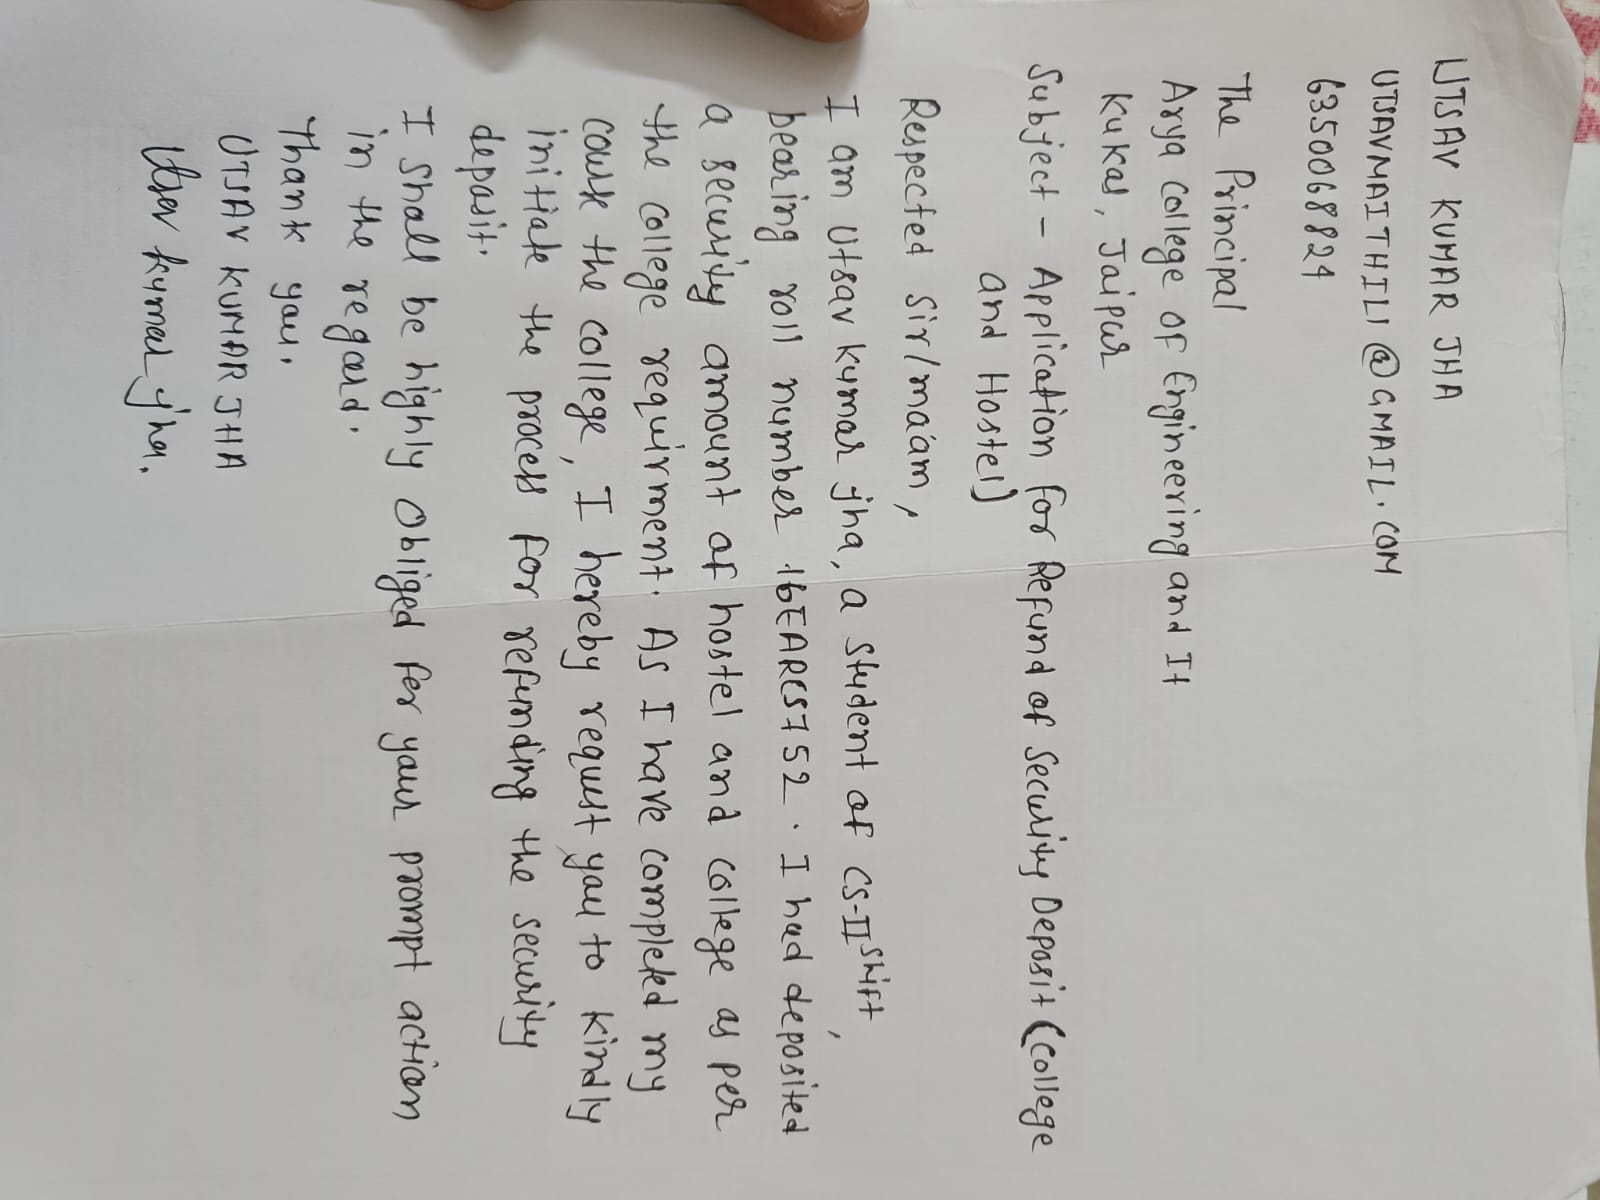 UTSAV KUMAR JHA
UTSAVMAITHILI@GMAIL.COM
6350068824
The Principal
Arya College of Engineering and It
Kukas, Jaipur
Subject - Application for Refund of Security Deposit (College
and Hostel)
Respected Sir/ma'am,
I am Utsav Kumar jha, a student of CS-II shift,
bearing roll number 16EARCS752. I had deposited
a security amount of hostel and college as per
the college requirment. As I have completed my
couse the college, I hereby request you to kindly
initiate the process for refunding the security
deposit.
I shall be highly obliged for your prompt action
in the regard.
Thank you.
UTSAV KUMAR JHA
Utsav kumar jha.